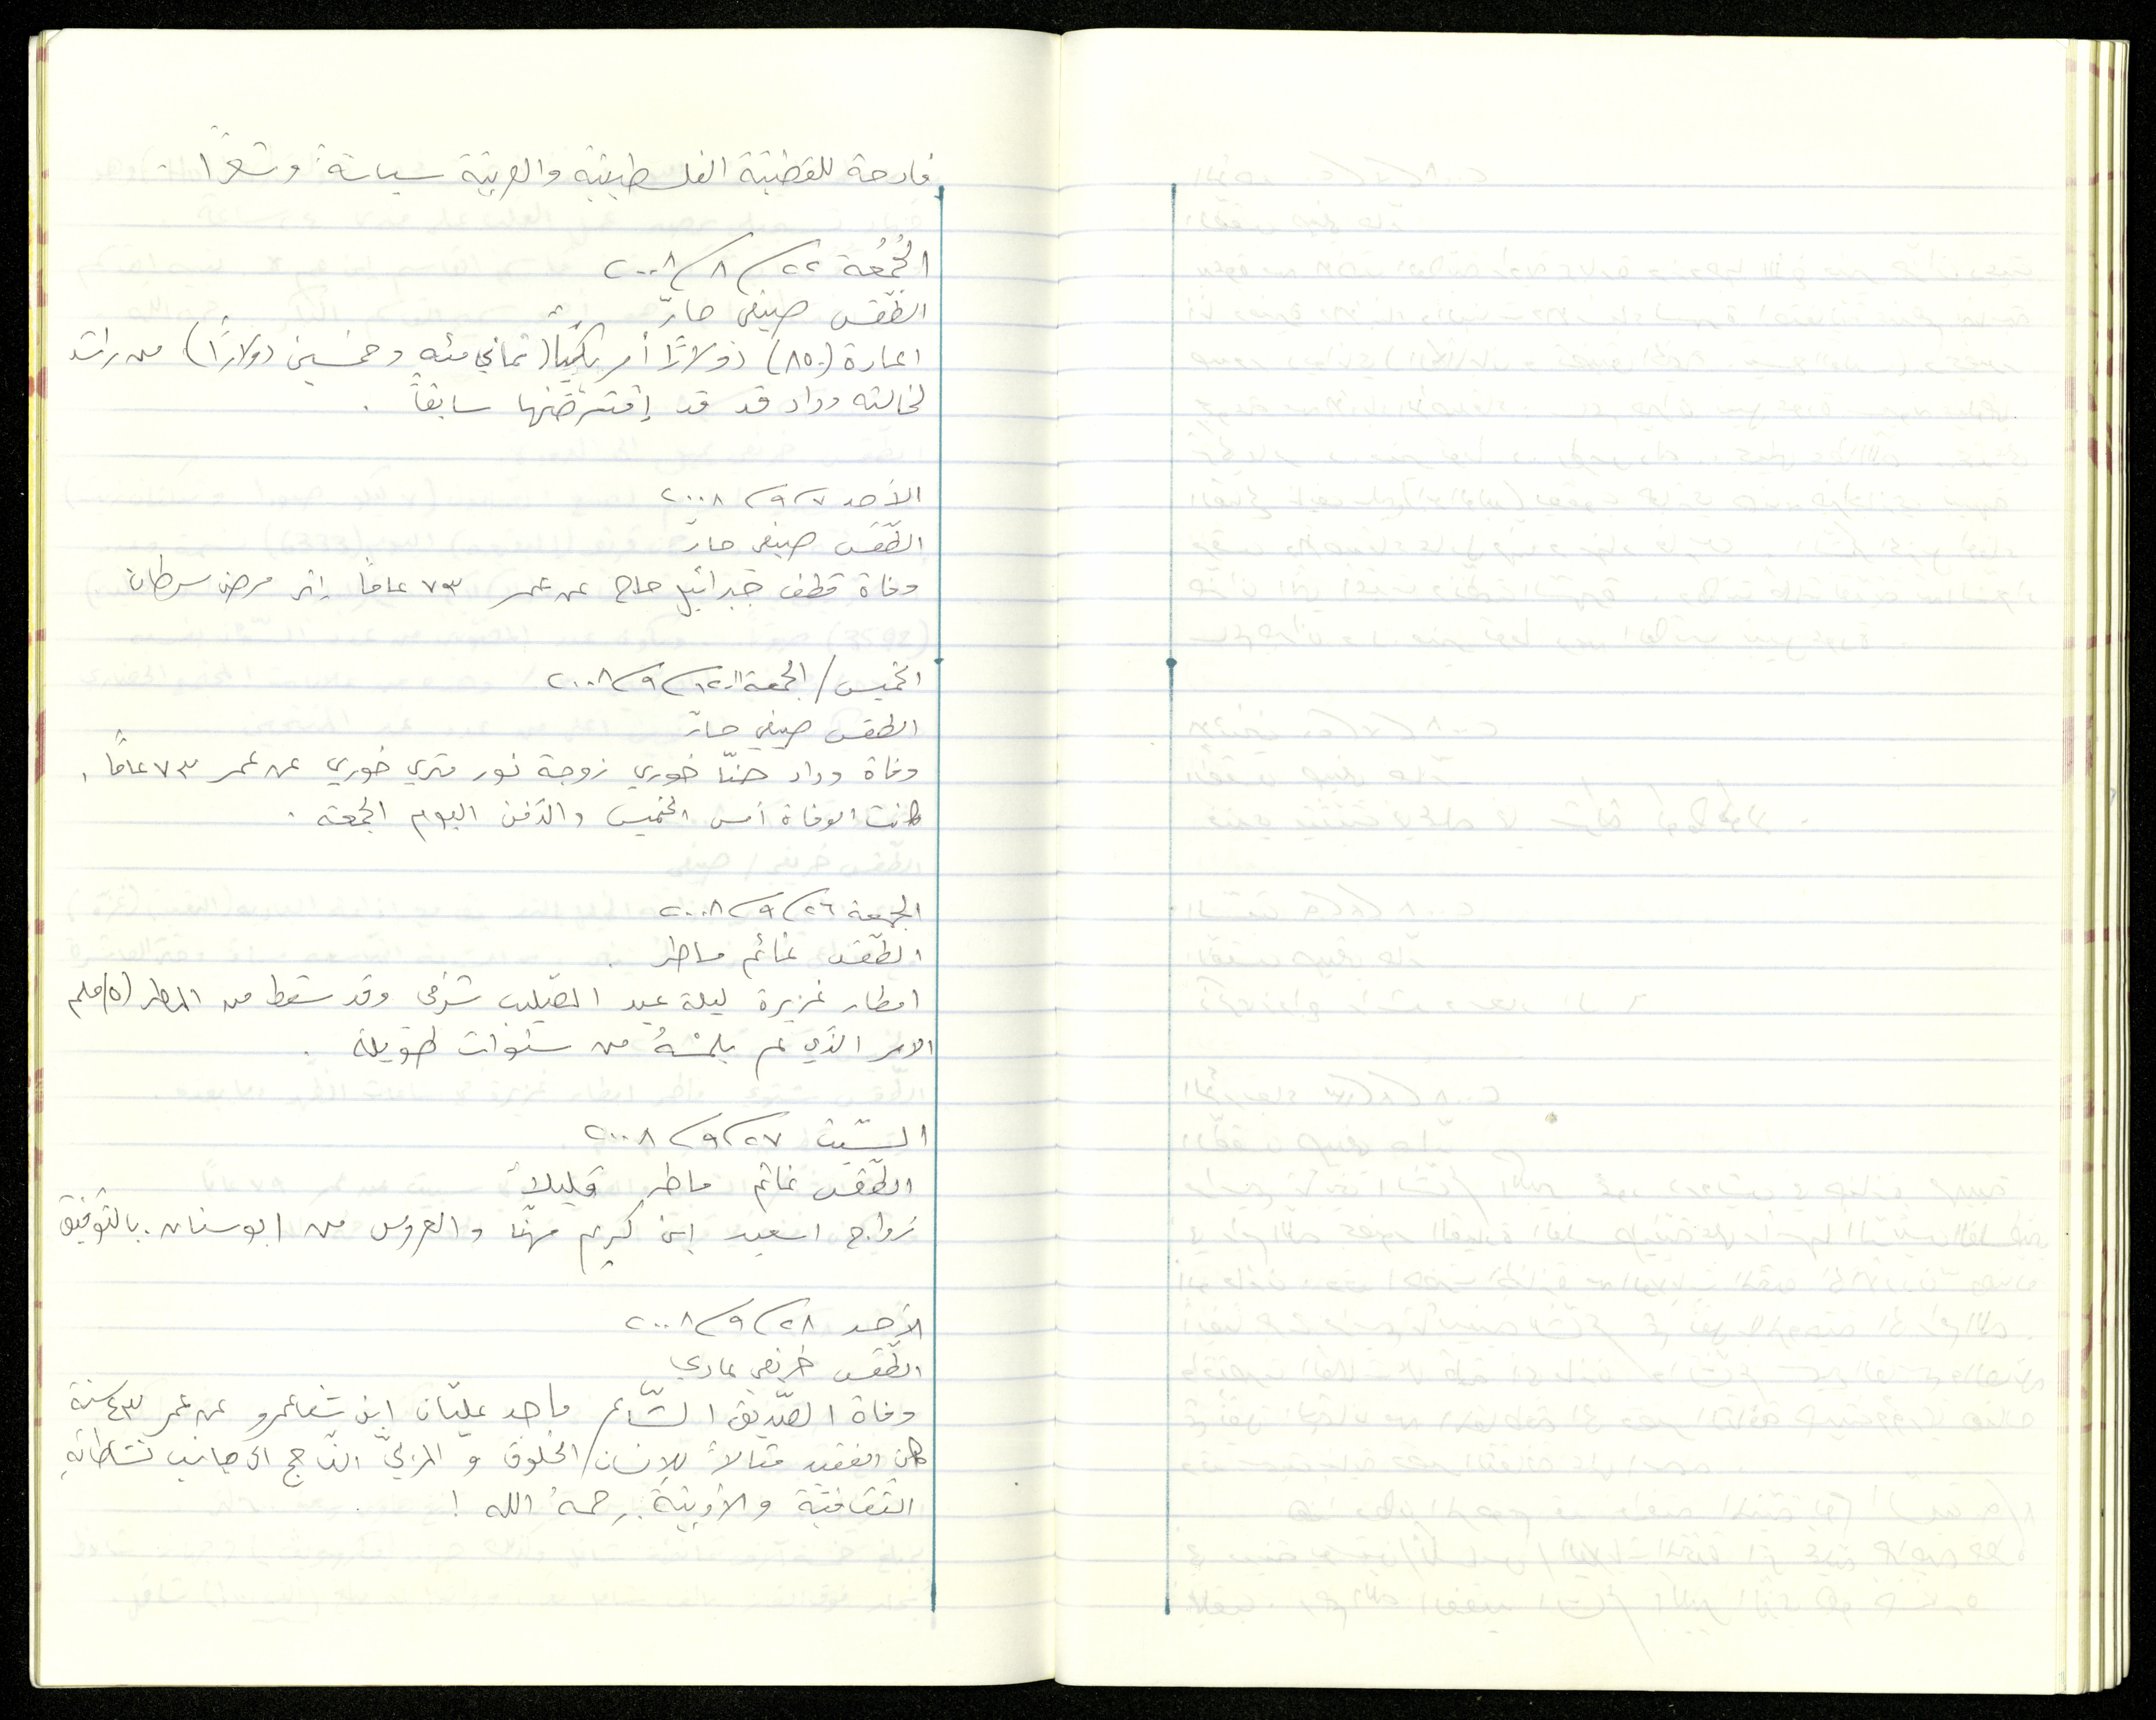 فادحة للقضيّة الفلسطينيّة والعربيّة سياسةً وشعرًا.
الجُمُعة ٢٢/٨/٢٠٠٨
الطّقس صيفي حارّ
اعارة (٨٥٠) دولارًا أمريكيًّا (ثماني مئه وخمسين دولارًا) من راشد
لخالته وداد قد قد إقترضَتها سابقاً .
الأحد ٧/٩/٢٠٠٨
الطّقس صيفي حارّ
وفاة قطف جبرائيل حاج عن عمر ٧٣ عامًا إثر مرض سرطان
الخميس/الجمعة ١١-١٢/٩/٢٠٠٨
الطقس صيفي حارّ
وفاة وداد حنّا خوري زوجة نور متري خوري عن عمر ٧٣ عامًا .
كانت الوفاة أمس الخميس والدّفن اليوم الجمعة .
الجمعة ٢٦/٩/٢٠٠٨
الطّقس غائم ماطر .
امطار غزيرة ليلة عيد الصّليب شرقي وقد سقط من المطر (٥١ ملم
الامر الّذي لم يلمسْهُ من سنوات طويلة .
السّبت ٢٧/٩/٢٠٠٨
الطّقس غائم ماطر قليلاً
زواج اسعيد إبن كريم مهنّا والعروس من ابوسنان. بالتّوفيق
الأحد ٢٨/٩/٢٠٠٨
الطّقس خريفي عادي
وفاة الصّديق الشّاعر ماجد عليّان إبن شفاعمرو عن عمر ٤٣ سنة
كان الفقيد مثالاً للإنسان/الخلوق و المربيّ النّاجح الى جانب نشاطاتهِ
الثّقافيّة والأدبيّة. رحمهُ الله !